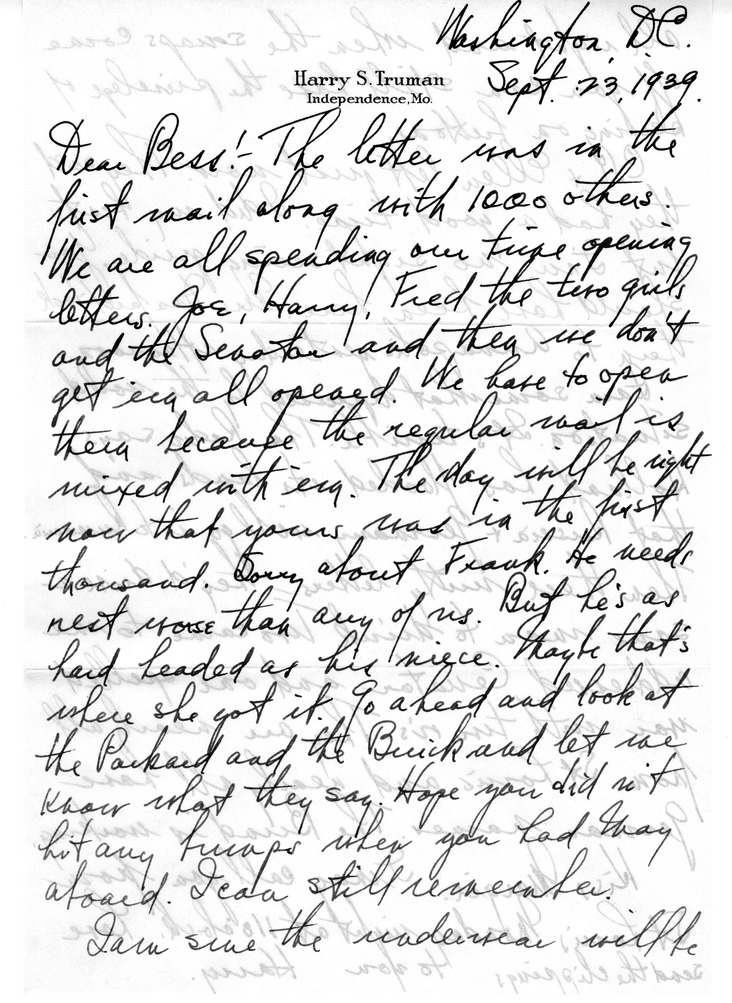 Washington, D.C.
Harry S. Truman
Sept. 23, 1939.
Independence, Mo.
Dear Bess:- The letter was in the
first mail along with 1000 others.
We are all spending our time opening
letters. Joe, Harry, Fred the two girls
and the Senator and then we don't
get em all opened. We have to open
them because the regular mail is
mixed with em. The day will be right
now that yours was in the first
thousand. Sorry about Frank. He needs
rest worse than any of us. But he's as
hard headed as his niece. Maybe that's
where she got it. Go ahead and look at
the Packard and the Buick and let me
know what they say. Hope you did n't
hit any bumps when you had May
aboard. I can still remember.
I am sure the underwear will be